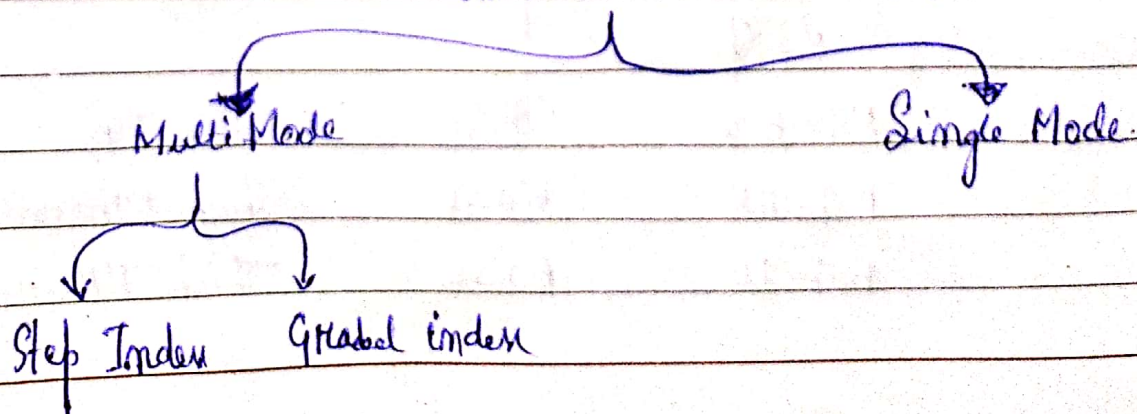 MultiMode Single Mode.
Step Index Graded index